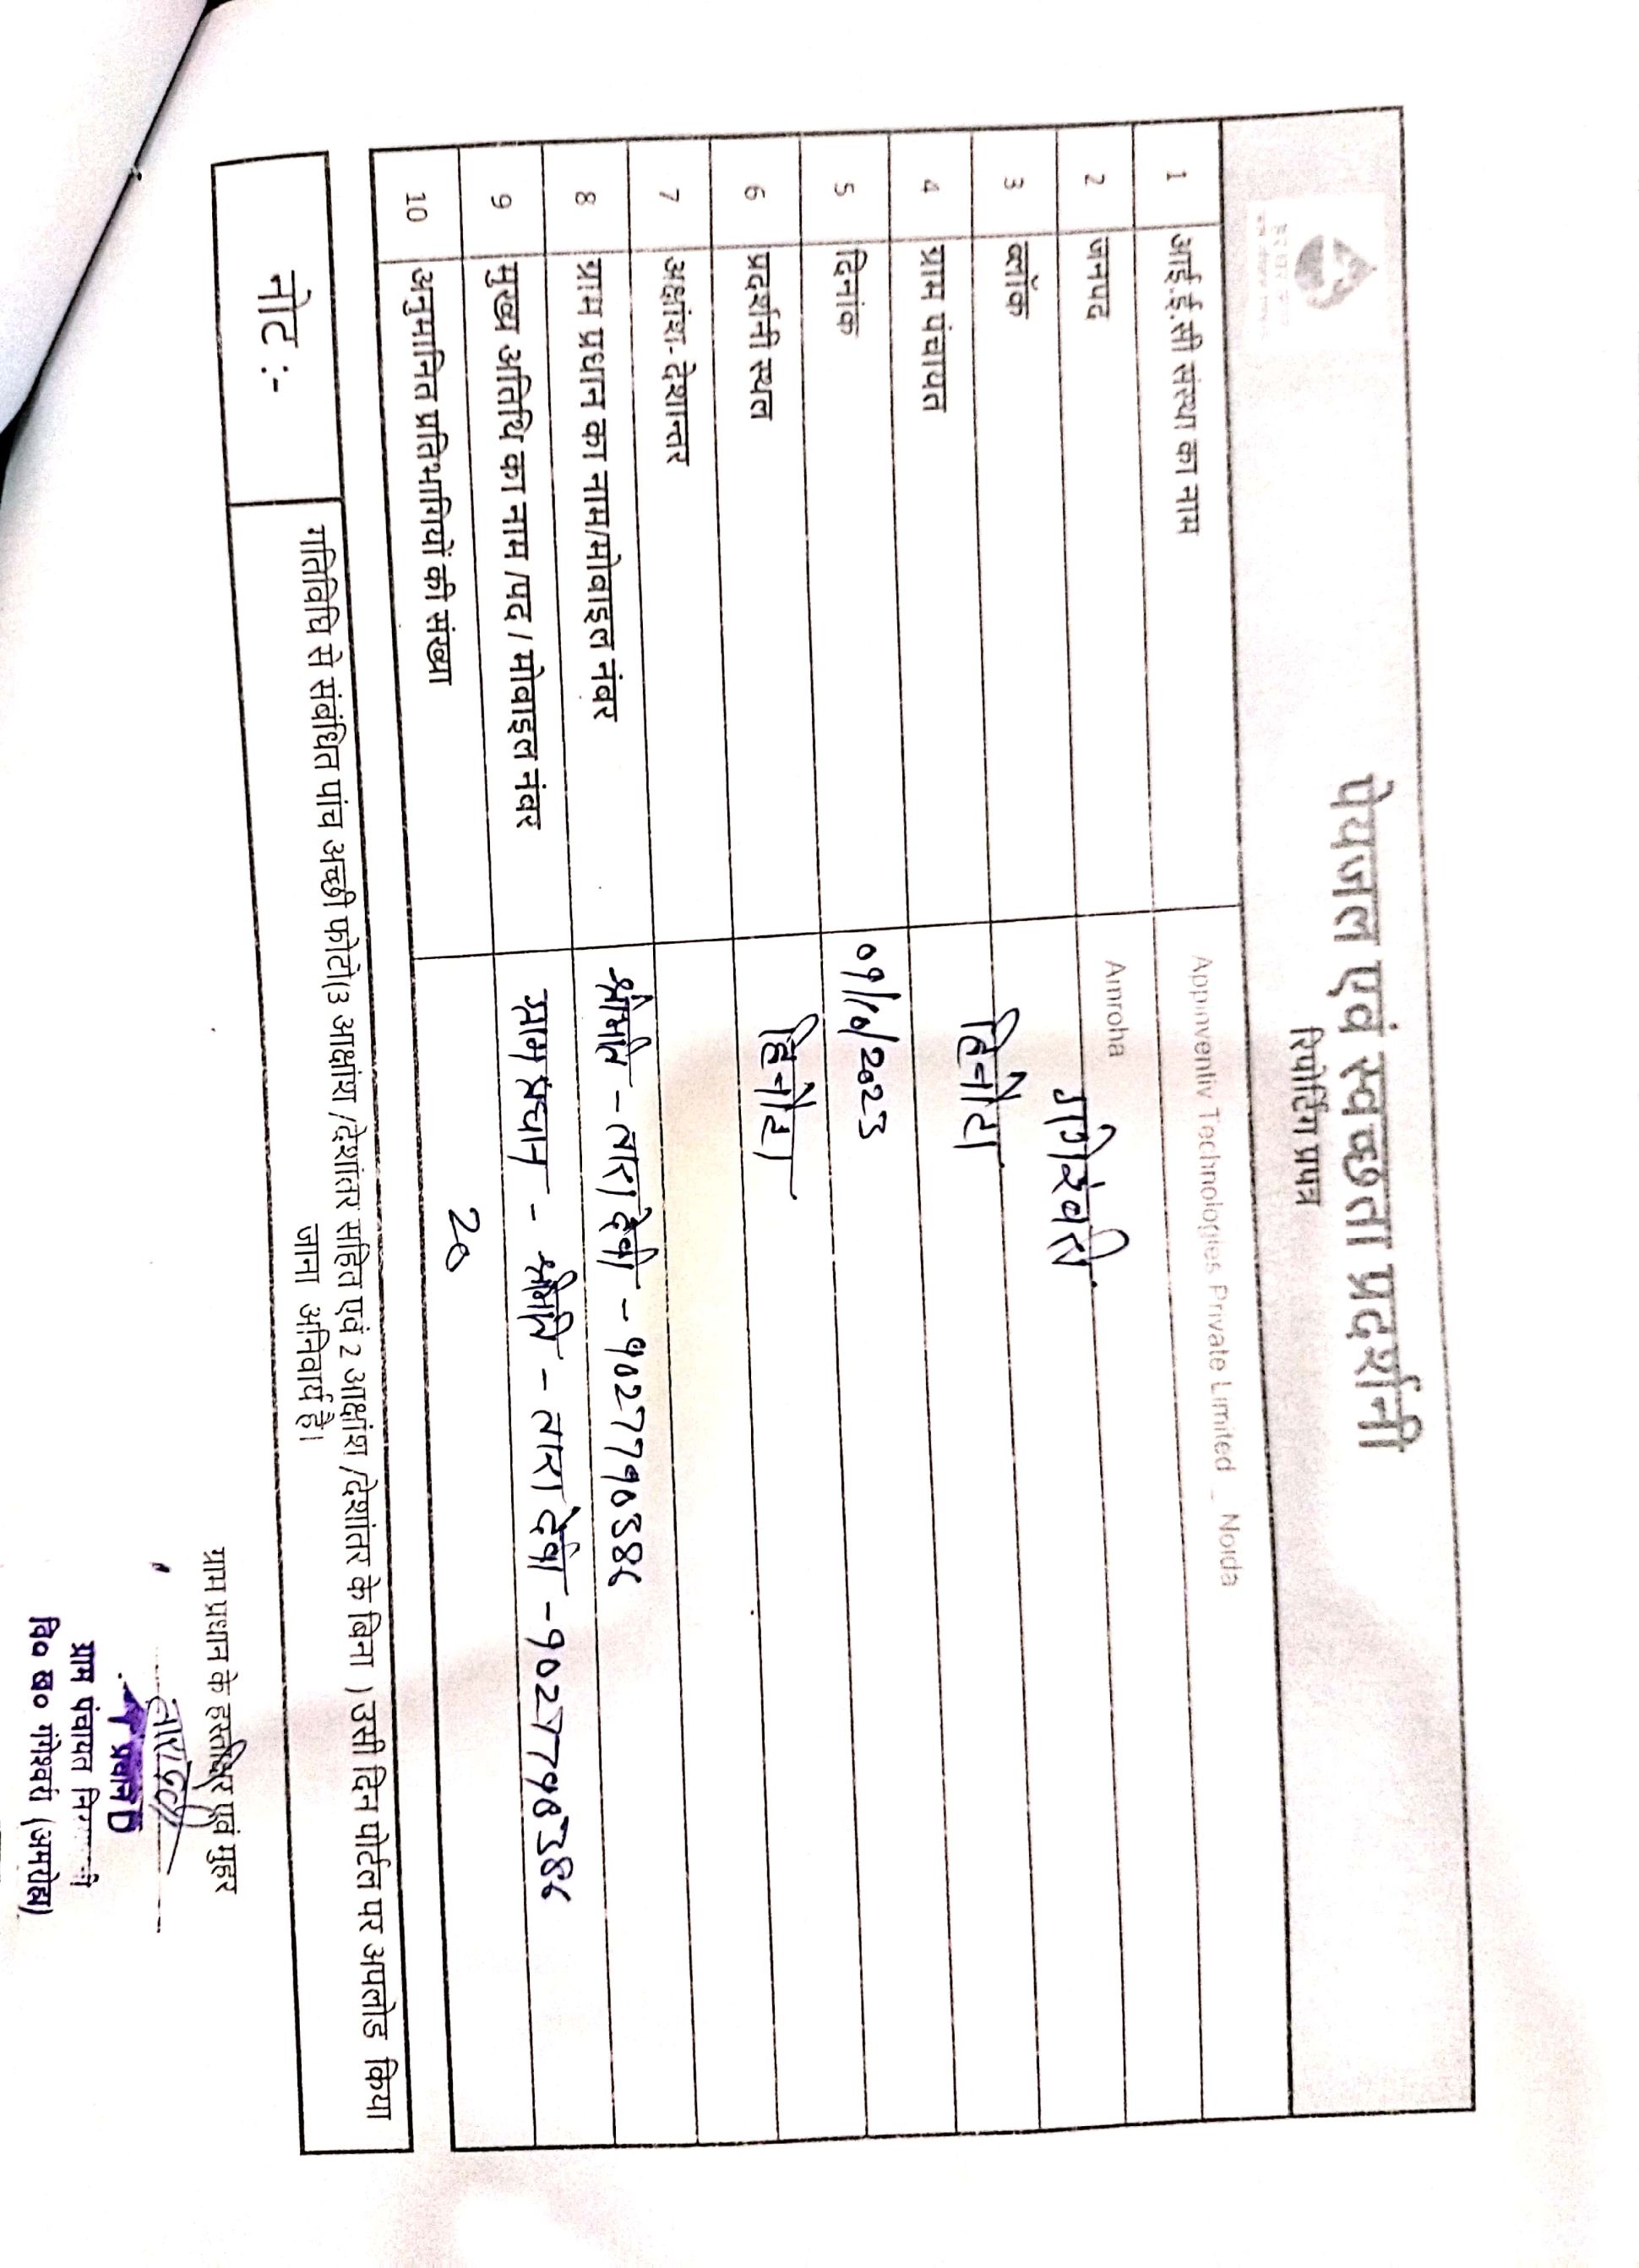 पेयजल एवं स्वच्छता प्रदर्शनी
रिपोर्टिंग प्रपत्र
1 आई.ई.सी संस्था का नाम Appinventiv Technologies Private Limited _ Noida
2 जनपद Amroha
3 ब्लॉक गंगेश्वरी
4 ग्राम पंचायत
5 दिनांक 09/10/2023
6 प्रदर्शनी स्थल
7 अक्षांश-देशान्तर
8 ग्राम प्रधान का नाम/मोबाइल नंबर श्रीमति - तारा देवी - 9027790386
9 मुख्य अतिथि का नाम /पद / मोबाइल नंबर ग्राम प्रधान - श्रीमति - तारा देवी - 9027790386
10 अनुमानित प्रतिभागियों की संख्या 20
नोट :-
गतिविधि से संबंधित पांच अच्छी फोटो(3 आक्षांश /देशांतर सहित एवं 2 आक्षांश /देशांतर के बिना ) उसी दिन पोर्टल पर अपलोड किया
जाना अनिवार्य है।
ग्राम प्रधान के हस्ताक्षर एवं मुहर
तारा देवी
प्रधान
ग्राम पंचायत
वि० ख० गंगेश्वरी (अमरोहा)